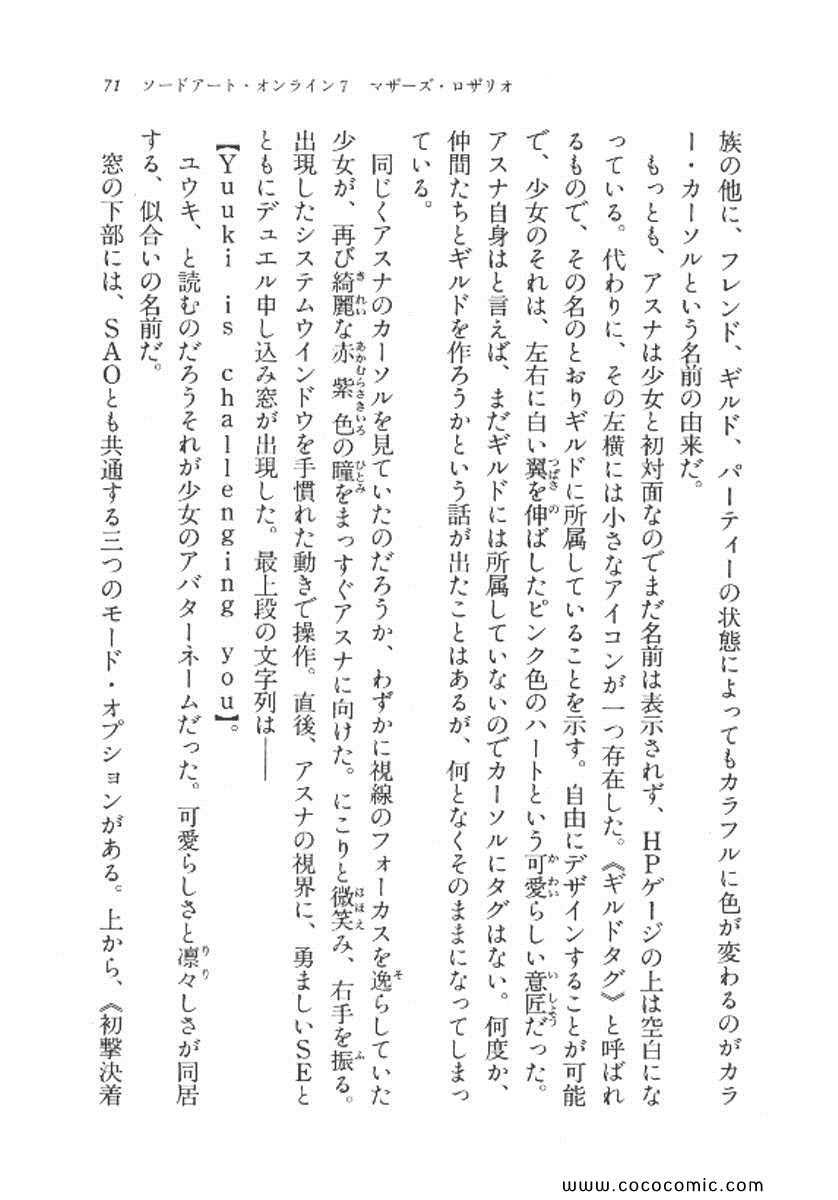 71　ソードアート・オンライン7　マザーズ・ロザリオ
族の他に、フレンド、ギルド、パーティーの状態によってもカラフルに色が変わるのがカラ
ー・カーソルという名前の由来だ。
もっとも、アスナは少女と初対面なのでまだ名前は表示されず、HPゲージの上は空白にな
っている。代わりに、その左横には小さなアイコンが一つ存在した。《ギルドタグ》と呼ばれ
るもので、その名のとおりギルドに所属していることを示す。自由にデザインすることが可能
で、少女のそれは、左右に白い翼を伸ばしたピンク色のハートという可愛らしい意匠だった。
アスナ自身はと言えば、まだギルドには所属していないのでカーソルにタグはない。何度か、
仲間たちとギルドを作ろうかという話が出たことはあるが、何となくそのままになってしまっ
ている。
同じくアスナのカーソルを見ていたのだろうか、わずかに視線のフォーカスを逸らしていた
少女が、再び綺麗な赤紫色の瞳をまっすぐアスナに向けた。にこりと微笑み、右手を振る。
出現したシステムウインドウを手慣れた動きで操作。直後、アスナの視界に、勇ましいSEと
ともにデュエル申し込み窓が出現した。最上段の文字列は――
【Yuuki is challenging you】。
ユウキ、と読むのだろうそれが少女のアバターネームだった。可愛らしさと凛々しさが同居
する、似合いの名前だ。
窓の下部には、SAOとも共通する三つのモード・オプションがある。上から、《初撃決着
www.cococomic.com